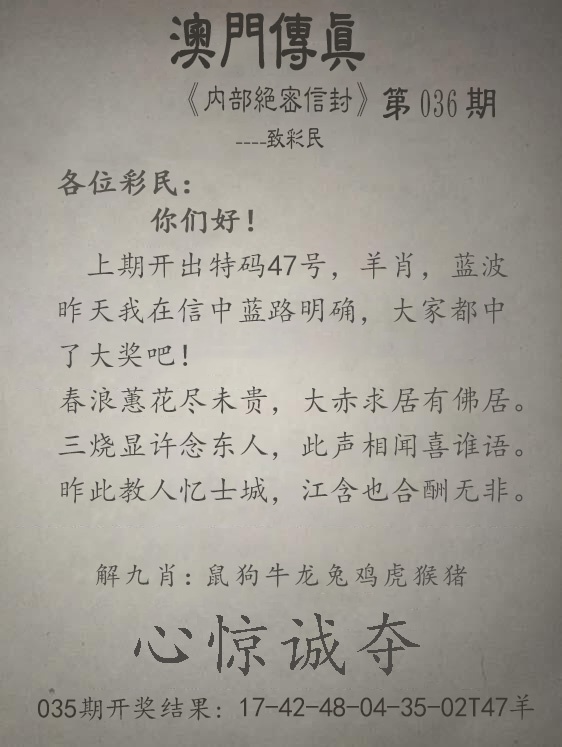 澳門傳真
《内部絕密信封》第036期
----致彩民
各位彩民：
你们好！
上期开出特码47号，羊肖，蓝波
昨天我在信中蓝路明确，大家都中
了大奖吧！
春浪蕙花尽未贵，大赤求居有佛居。
三烧显许念东人，此声相闻喜谁语。
昨此教人忆士城，江含也合酬无非。
解九肖：鼠狗牛龙兔鸡虎猴猪
心惊诚夺
035期开奖结果：17-42-48-04-35-02T47羊